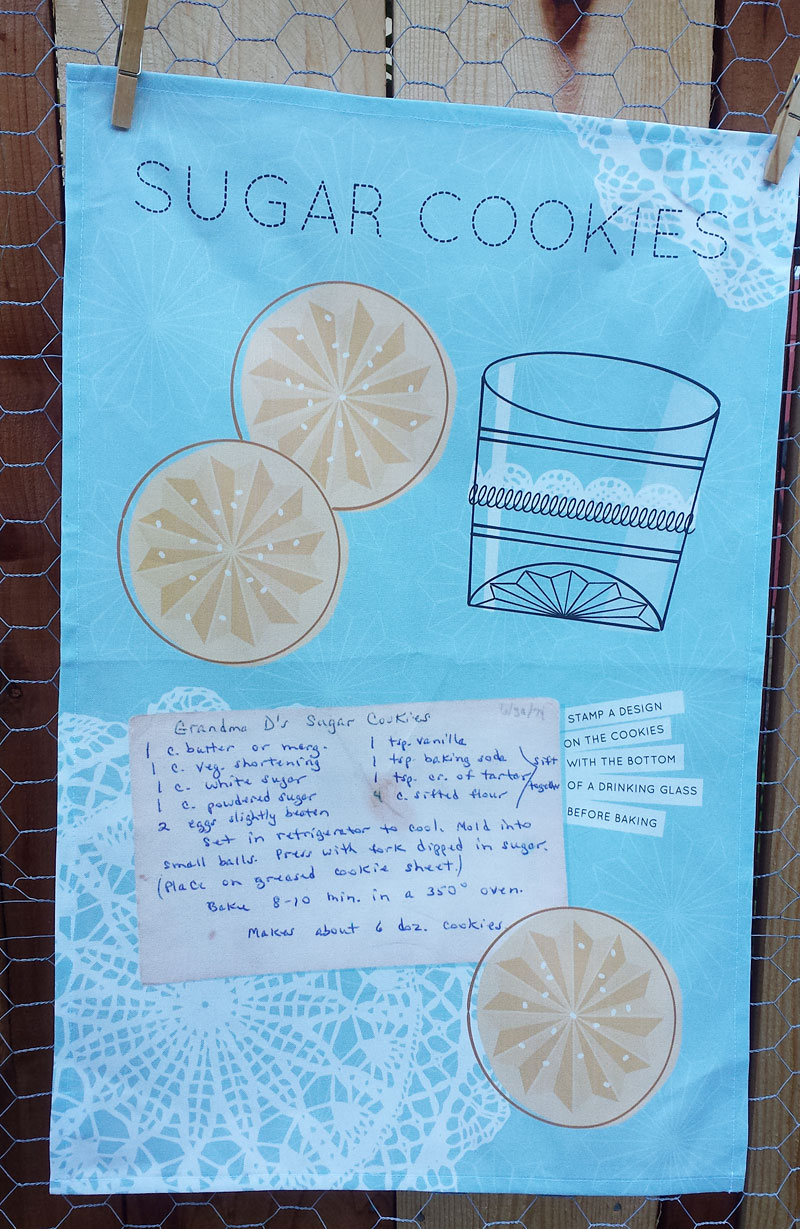 SUGAR COOKIES
Grandma D's Sugar Cookies
1 c. butter or marg.
1 c. veg. shortening
1 c. white sugar
1 c. powdered sugar
2 eggs slightly beaten
1 tsp. vanilla
1 tsp. baking soda
1 tsp. cr. of tartar
4 c. sifted flour
sift
together
Set in refrigerator to cool. Mold into
small balls. Press with fork dipped in sugar.
(Place on greased cookie sheet.)
Bake 8-10 min. in a 350° oven.
Makes about 6 doz. cookies
STAMP A DESIGN
ON THE COOKIES
WITH THE BOTTOM
OF A DRINKING GLASS
BEFORE BAKING